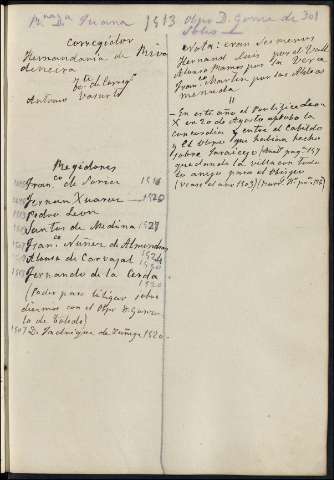 Rnaga Da Juana 1513 Obpo D. Gomez de Sol
Corregidor
Hernandaria de Riva
deneira
Te de Correg
Antonio Vasurto
Regidores
Fran.co de Soria 1516
Fernan Xuarez 1520
Pedro Leon
Santos de Medina 1527
Fran.co Nuñez de Almendras
Alonso de Carvajal 1524
Fernando de la Cerda
1520
(Poder para litigar sobre
diezmos con el Obpo D. Gomez
la de Toledo)
1507 D. Fadrique de Zuñiga 1520
Nota: eran sesmeros
Hernand Luis por el Vall
Alonso Ramos por la Vera
Fran.co Martin por las Aldeas
menuda
"
- En este año el Pontifice Leon
X en 20 de Agosto aprobo la
concordia entre el Cabildo
y el Obpo que habian hecho
sobre Jaraicejo (Anal. pag. 157
quedando la villa con todo
su anejo para el Obispo
(Veas. el año 1503)